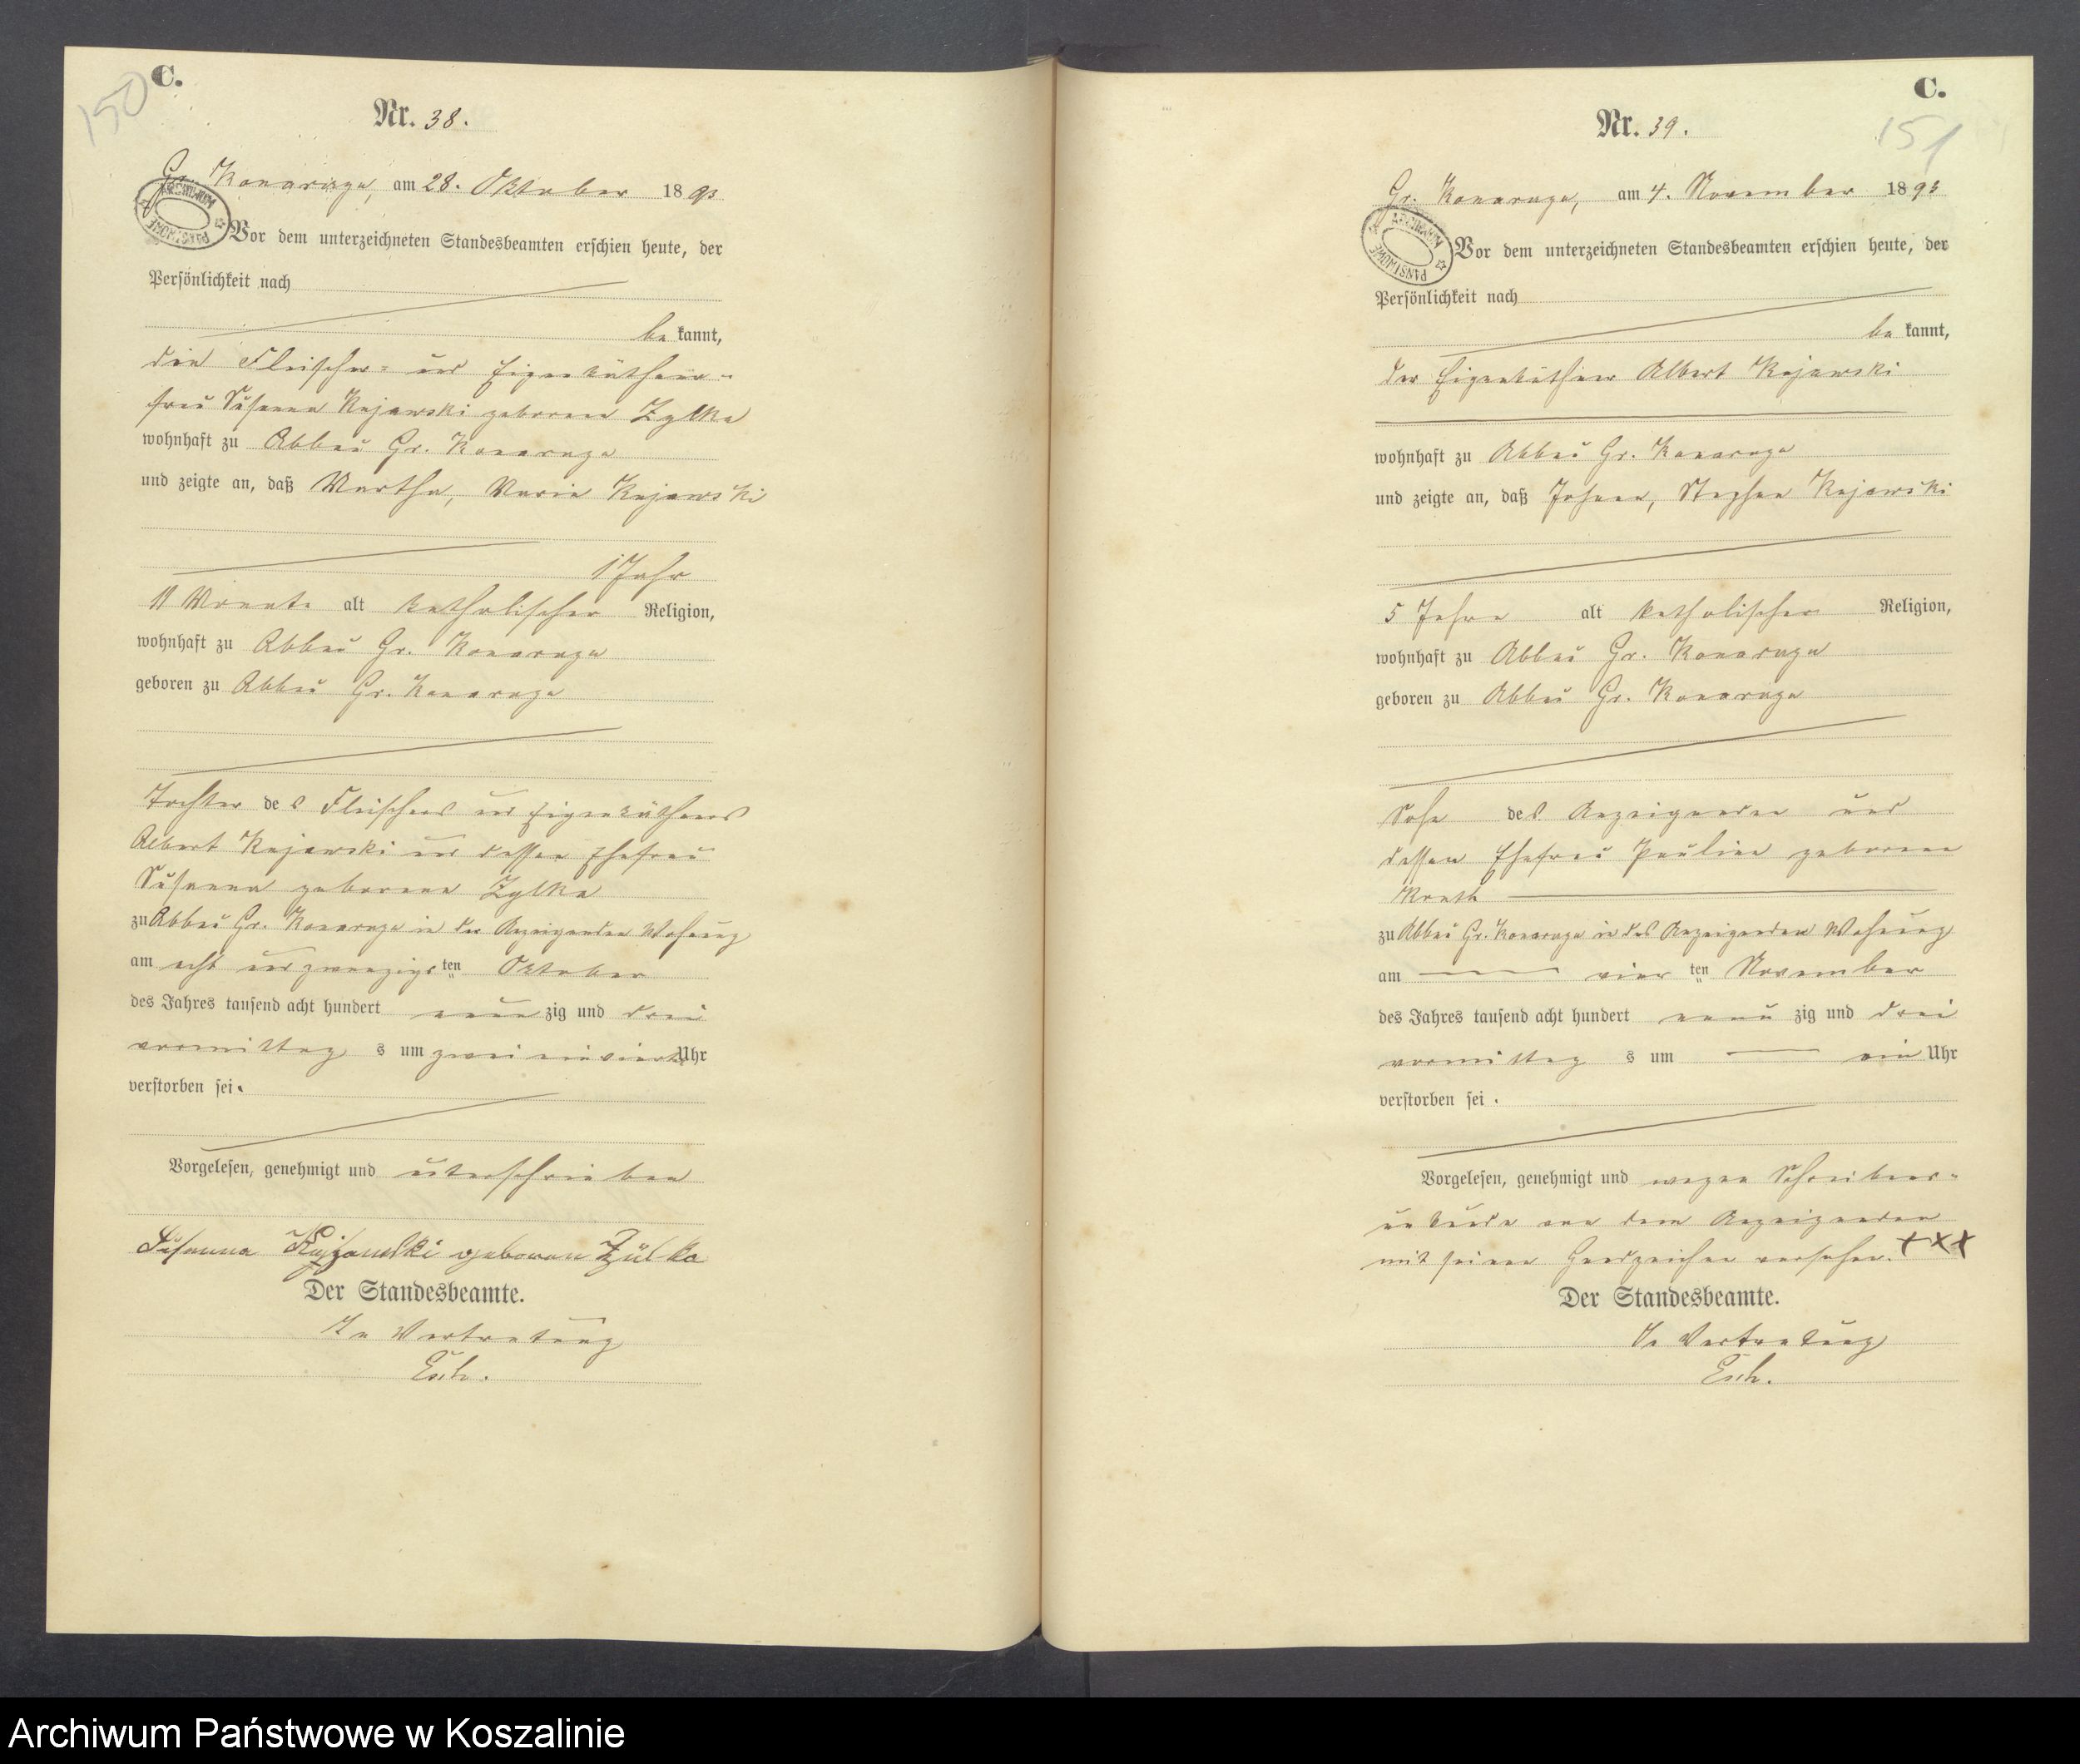 150
C.
Nr. 38.
Gr. Konarzyn, am 28. Oktober 1893
Vor dem unterzeichneten Standesbeamten erschien heute, der
Persönlichkeit nach
be kannt,
die Fleischer- und Eigenthümer-
frau Susanna Kujawski geborene Zylka
wohnhaft zu Abbau Gr. Konarzyn
und zeigte an, daß Martha, Maria Kujawski
1 Jahr
11 Monate alt katholischer Religion,
wohnhaft zu Abbau Gr. Konarzyn
geboren zu Abbau Gr. Konarzyn
Tochter des Fleischers und Eigenthümers
Albert Kujawski und dessen Ehefrau
Susanna geborene Zylka
zu Abbau Gr. Konarzyn in der Anzeigenden Wohnung
am acht und zwanzigsten Oktober
des Jahres tausend acht hundert neun zig und drei
vormittags um zwei einviertel Uhr
verstorben sei.
Vorgelesen, genehmigt und unterschrieben
Susanna Kujzawski geboren Zülka
Der Standesbeamte.
In Vertretung
Esch.
C.
151
Nr. 39.
Gr. Konarzyn, am 4. November 1893
Vor dem unterzeichneten Standesbeamten erschien heute, der
Persönlichkeit nach
be kannt,
der Eigenthümer Albert Kujawski
wohnhaft zu Abbau Gr. Konarzyn
und zeigte an, daß Johann, Stephan Kujawski
5 Jahre alt katholischer Religion,
wohnhaft zu Abbau Gr. Konarzyn
geboren zu Abbau Gr. Konarzyn
Sohn des Anzeigenden und
dessen Ehefrau Pauline geborene
zu Abbau Gr. Konarzyn in des Anzeigenden Wohnung
am vier ten November
des Jahres tausend acht hundert neun zig und drei
vormittags um ein Uhr
verstorben sei.
Vorgelesen, genehmigt und wegen Schreibens-
unkunde von dem Anzeigenden
mit seinem Handzeichen versehen. +++
Der Standesbeamte.
In Vertretung
Esch.
Archiwum Państwowe w Koszalinie